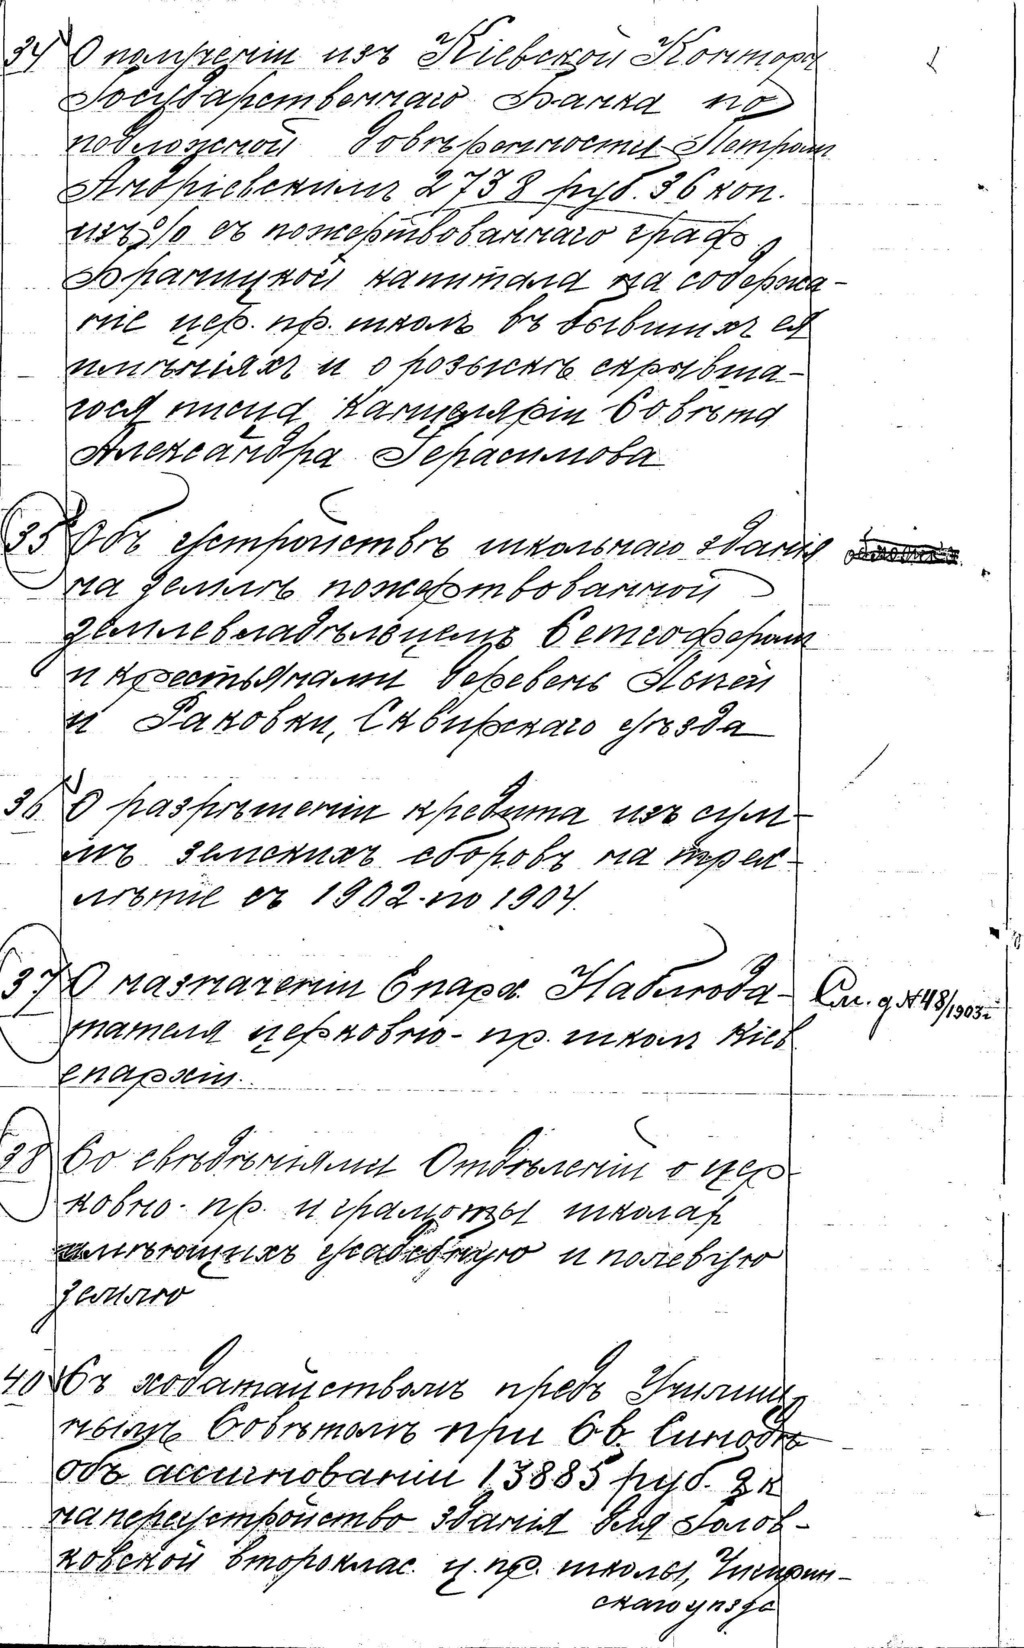 34 О полученіи изъ Кіевской Конторы
Государственнаго Банка по
подложной довѣренности Петромъ
Андріевскимъ 2738 руб. 36 коп.
изъ % съ пожертвованнаго граф.
Браницкой капитала на содержа-
ніе цер. пр. школъ въ бывшихъ ея
имѣніяхъ и о розыскѣ скрывша-
гося писца Канцеляріи Совѣта
Александра Герасимова
35 Объ устройствѣ школьнаго зданія
на землѣ пожертвованной
землевладѣльцемъ Бетгоферомъ
и крестьянами деревень
и Раковки, Сквирскаго уѣзда
36 О разрѣшеніи кредита изъ сум-
мъ земскихъ сборовъ на трех-
лѣтіе съ 1902 по 1904.
37 О назначеніи Епарх. Наблюда-
тателя церковно-пр. школъ Кіев.
епархіи.
См. д № 48/1903 г
38 Со свѣдѣніями Отдѣленій о цер-
ковно-пр. и грамоты школахъ
имѣющихъ усадебную и полевую
землю
40 Съ ходатайствомъ предъ Училищ-
нымъ Совѣтомъ при Св. Синодѣ
объ ассигнованіи 13885 руб. 9 к
на переустройство зданія для Голов-
ковской второклас. ц. пр. школы, Чигирин-
скаго уѣзда